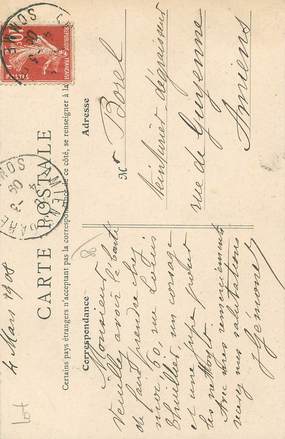 CARTE POSTALE
Certains pays étrangers n'acceptant pas la correspondance de ce côté, se renseigner à la
Correspondance
Adresse
4 Mars 1908
Monsieur
Veuillez avoir la bonté
de faire prendre chez
moi, 60, rue Louis
Thuillier, un corsage
et une jupe pour
les nettoyer.
Avec mes remerciements
recevez mes salutations
Mr Bosel
teinturier dégraisseur
rue de Guyenne
Amiens
10
POSTES
SOMME
GARE
Lot
8